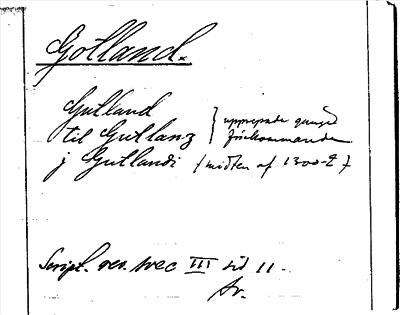 Gotland.
Gutland } upprepade gånger
til Gutlanz } förekommande
j Gutlandi (midten af 1300-t)
Script. rer. svec III sid 11.